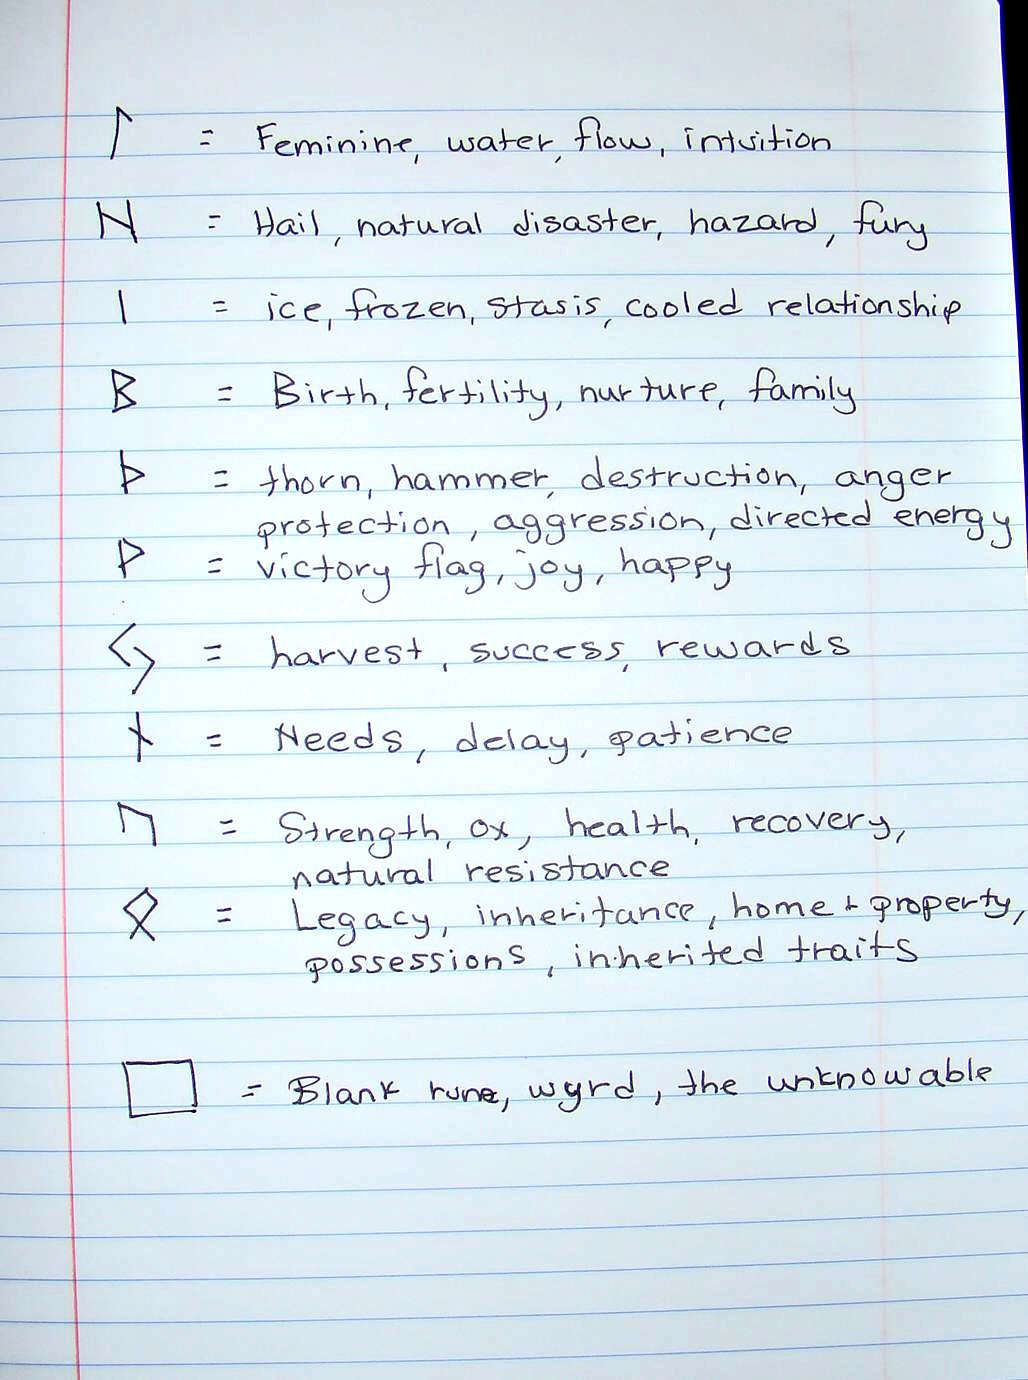 ᛚ = Feminine, water, flow, intuition
N = Hail, natural disaster, hazard, fury
ᛁ = ice, frozen, stasis, cooled relationship
B = Birth, fertility, nurture, family
ᚦ = thorn, hammer, destruction, anger
protection, aggression, directed energy
ᚹ = victory flag, joy, happy
ᛃ = harvest, success, rewards
ᚾ = Needs, delay, patience
ᚢ = Strength, ox, health, recovery,
natural resistance
ᛟ = Legacy, inheritance, home + property,
possessions, inherited traits
= Blank rune, wyrd, the unknowable